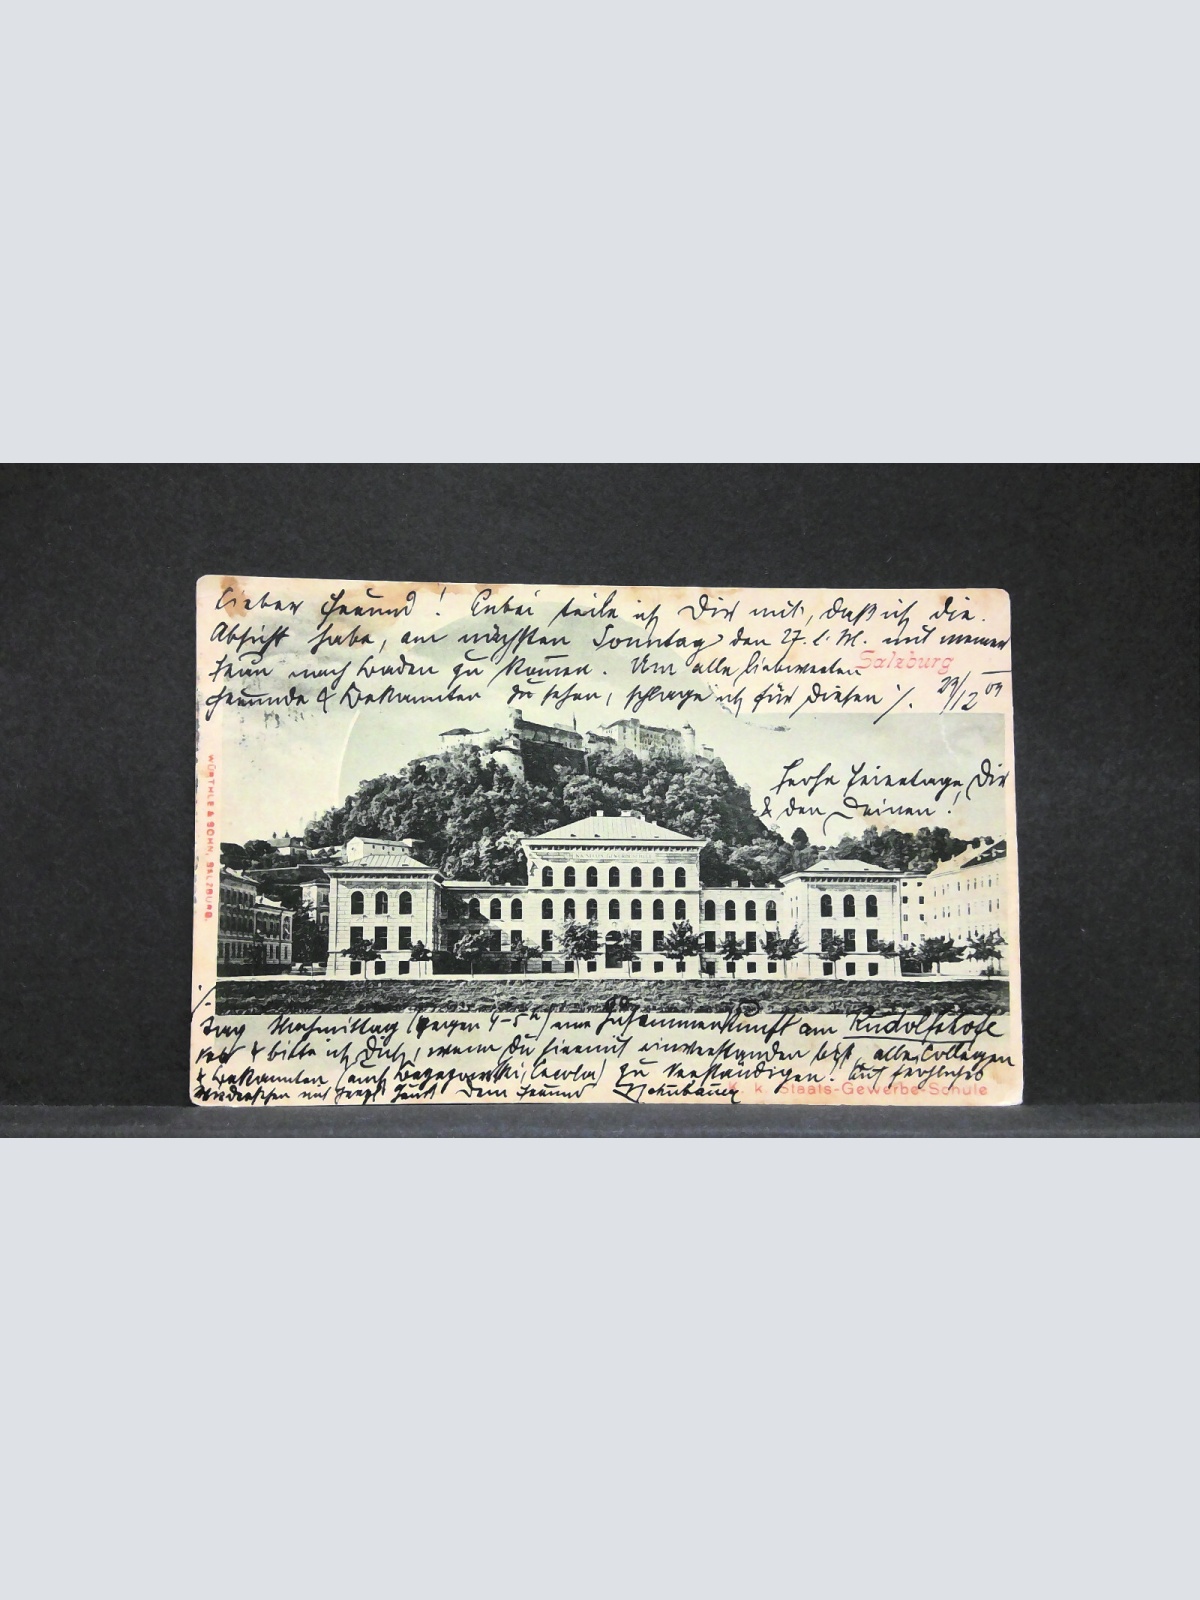 Lieber Freund! Anbei teile ich Dir mit, daß ich die
Absicht habe, am nächsten Sonntag den 27. l. M. mit meiner
Frau nach Baden zu kommen. Um alle liebwerten
Salzburg
Freunde & Bekannten zu sehen, schlage ich für diesen ·/.
23/12 03
Frohe Feiertage, Dir
& den Deinen!
WÜRTHLE & SOHN, SALZBURG.
·/.
Tag Nachmittag (gegen 4-5h) eine Zusammenkunft am Rudolfshofe
vor & bitte ich Dich, wenn Du hiemit einverstanden bist, alle Collegen
& Bekannten (auch) zu verständigen! Auf fröhliches
Wiedersehen und Dein Freund
K. k. Staats-Gewerbe-Schule